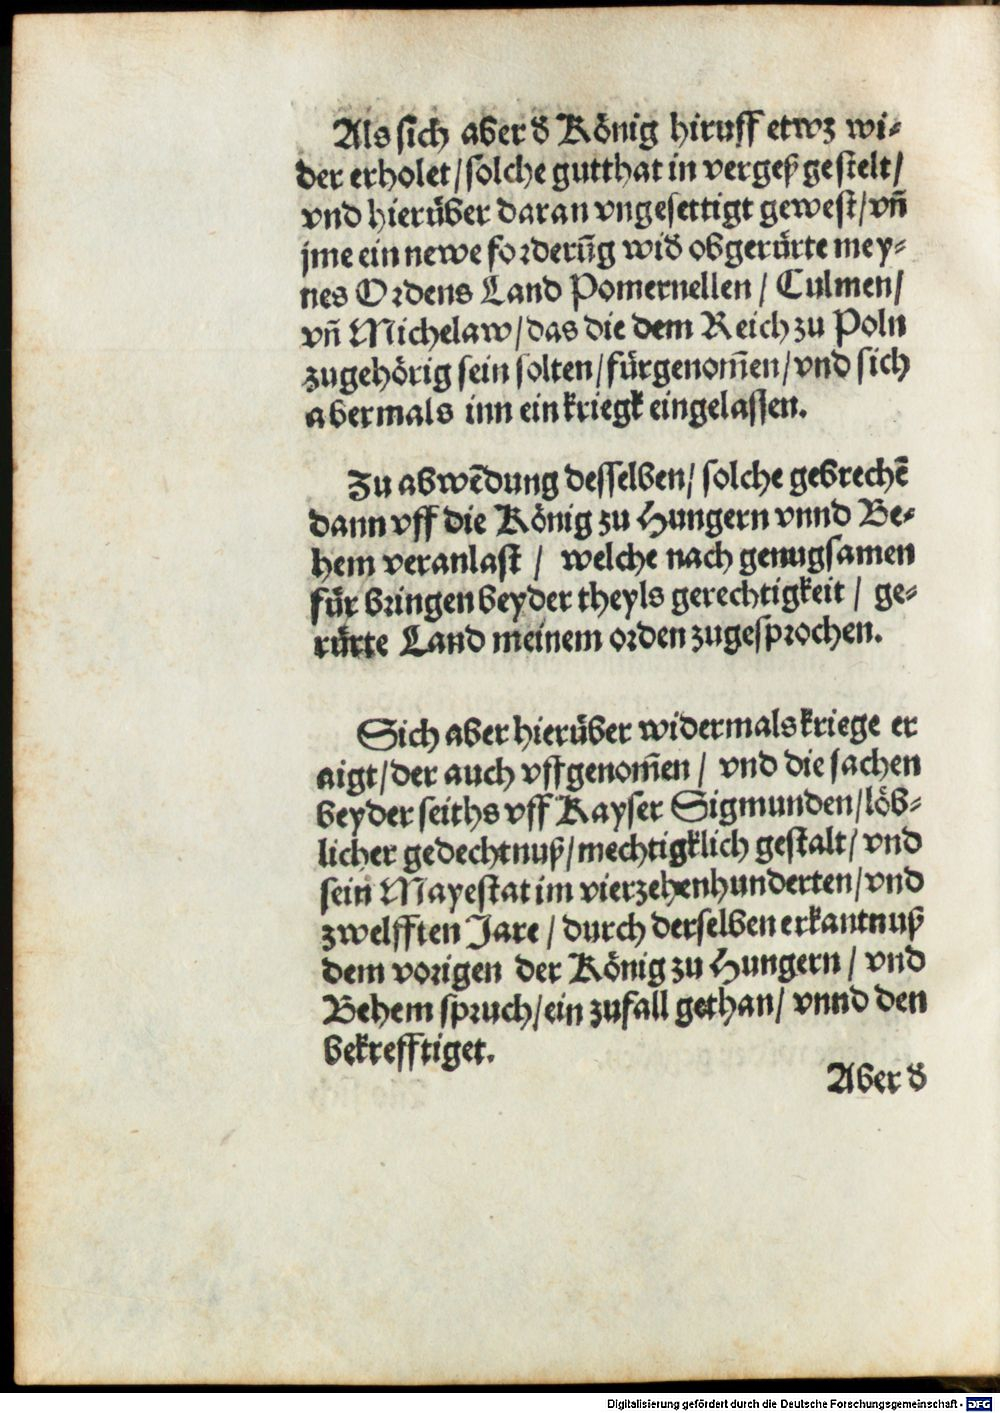 Als sich aber d̕ König hiruff etwz wi-
der erholet/solche gutthat in vergeß gestelt/
vnd hierüber daran vngesettigt gewest/vn̄
jme ein newe forderūg wid̕ obgerürte mey-
nes Ordens Land Pomernellen / Culmen/
vn̄ Michelaw/das die dem Reich zu Poln
zugehörig sein solten/fürgenom̄en/vnd sich
abermals inn ein kriegk eingelassen.
Zu abwēdung desselben/ solche gebrechē
dann vff die König zu Hungern vnnd Be-
hem veranlast / welche nach genugsamen
für bringen beyder theyls gerechtigkeit / ge-
rürte Land meinem orden zugesprochen.
Sich aber hierüber widermals kriege er
aigt/der auch vffgenom̄en / vnd die sachen
beyder seiths vff Kayser Sigmunden/löb-
licher gedechtnuß/mechtigklich gestalt/ vnd
sein Mayestat im vierzehenhunderten/vnd
zwelfften Jare / durch derselben erkantnuß
dem vorigen der König zu Hungern / vnd
Behem spruch/ein zufall gethan/ vnnd den
bekrefftiget.
Aber d̕
Digitalisierung gefördert durch die Deutsche Forschungsgemeinschaft - DFG